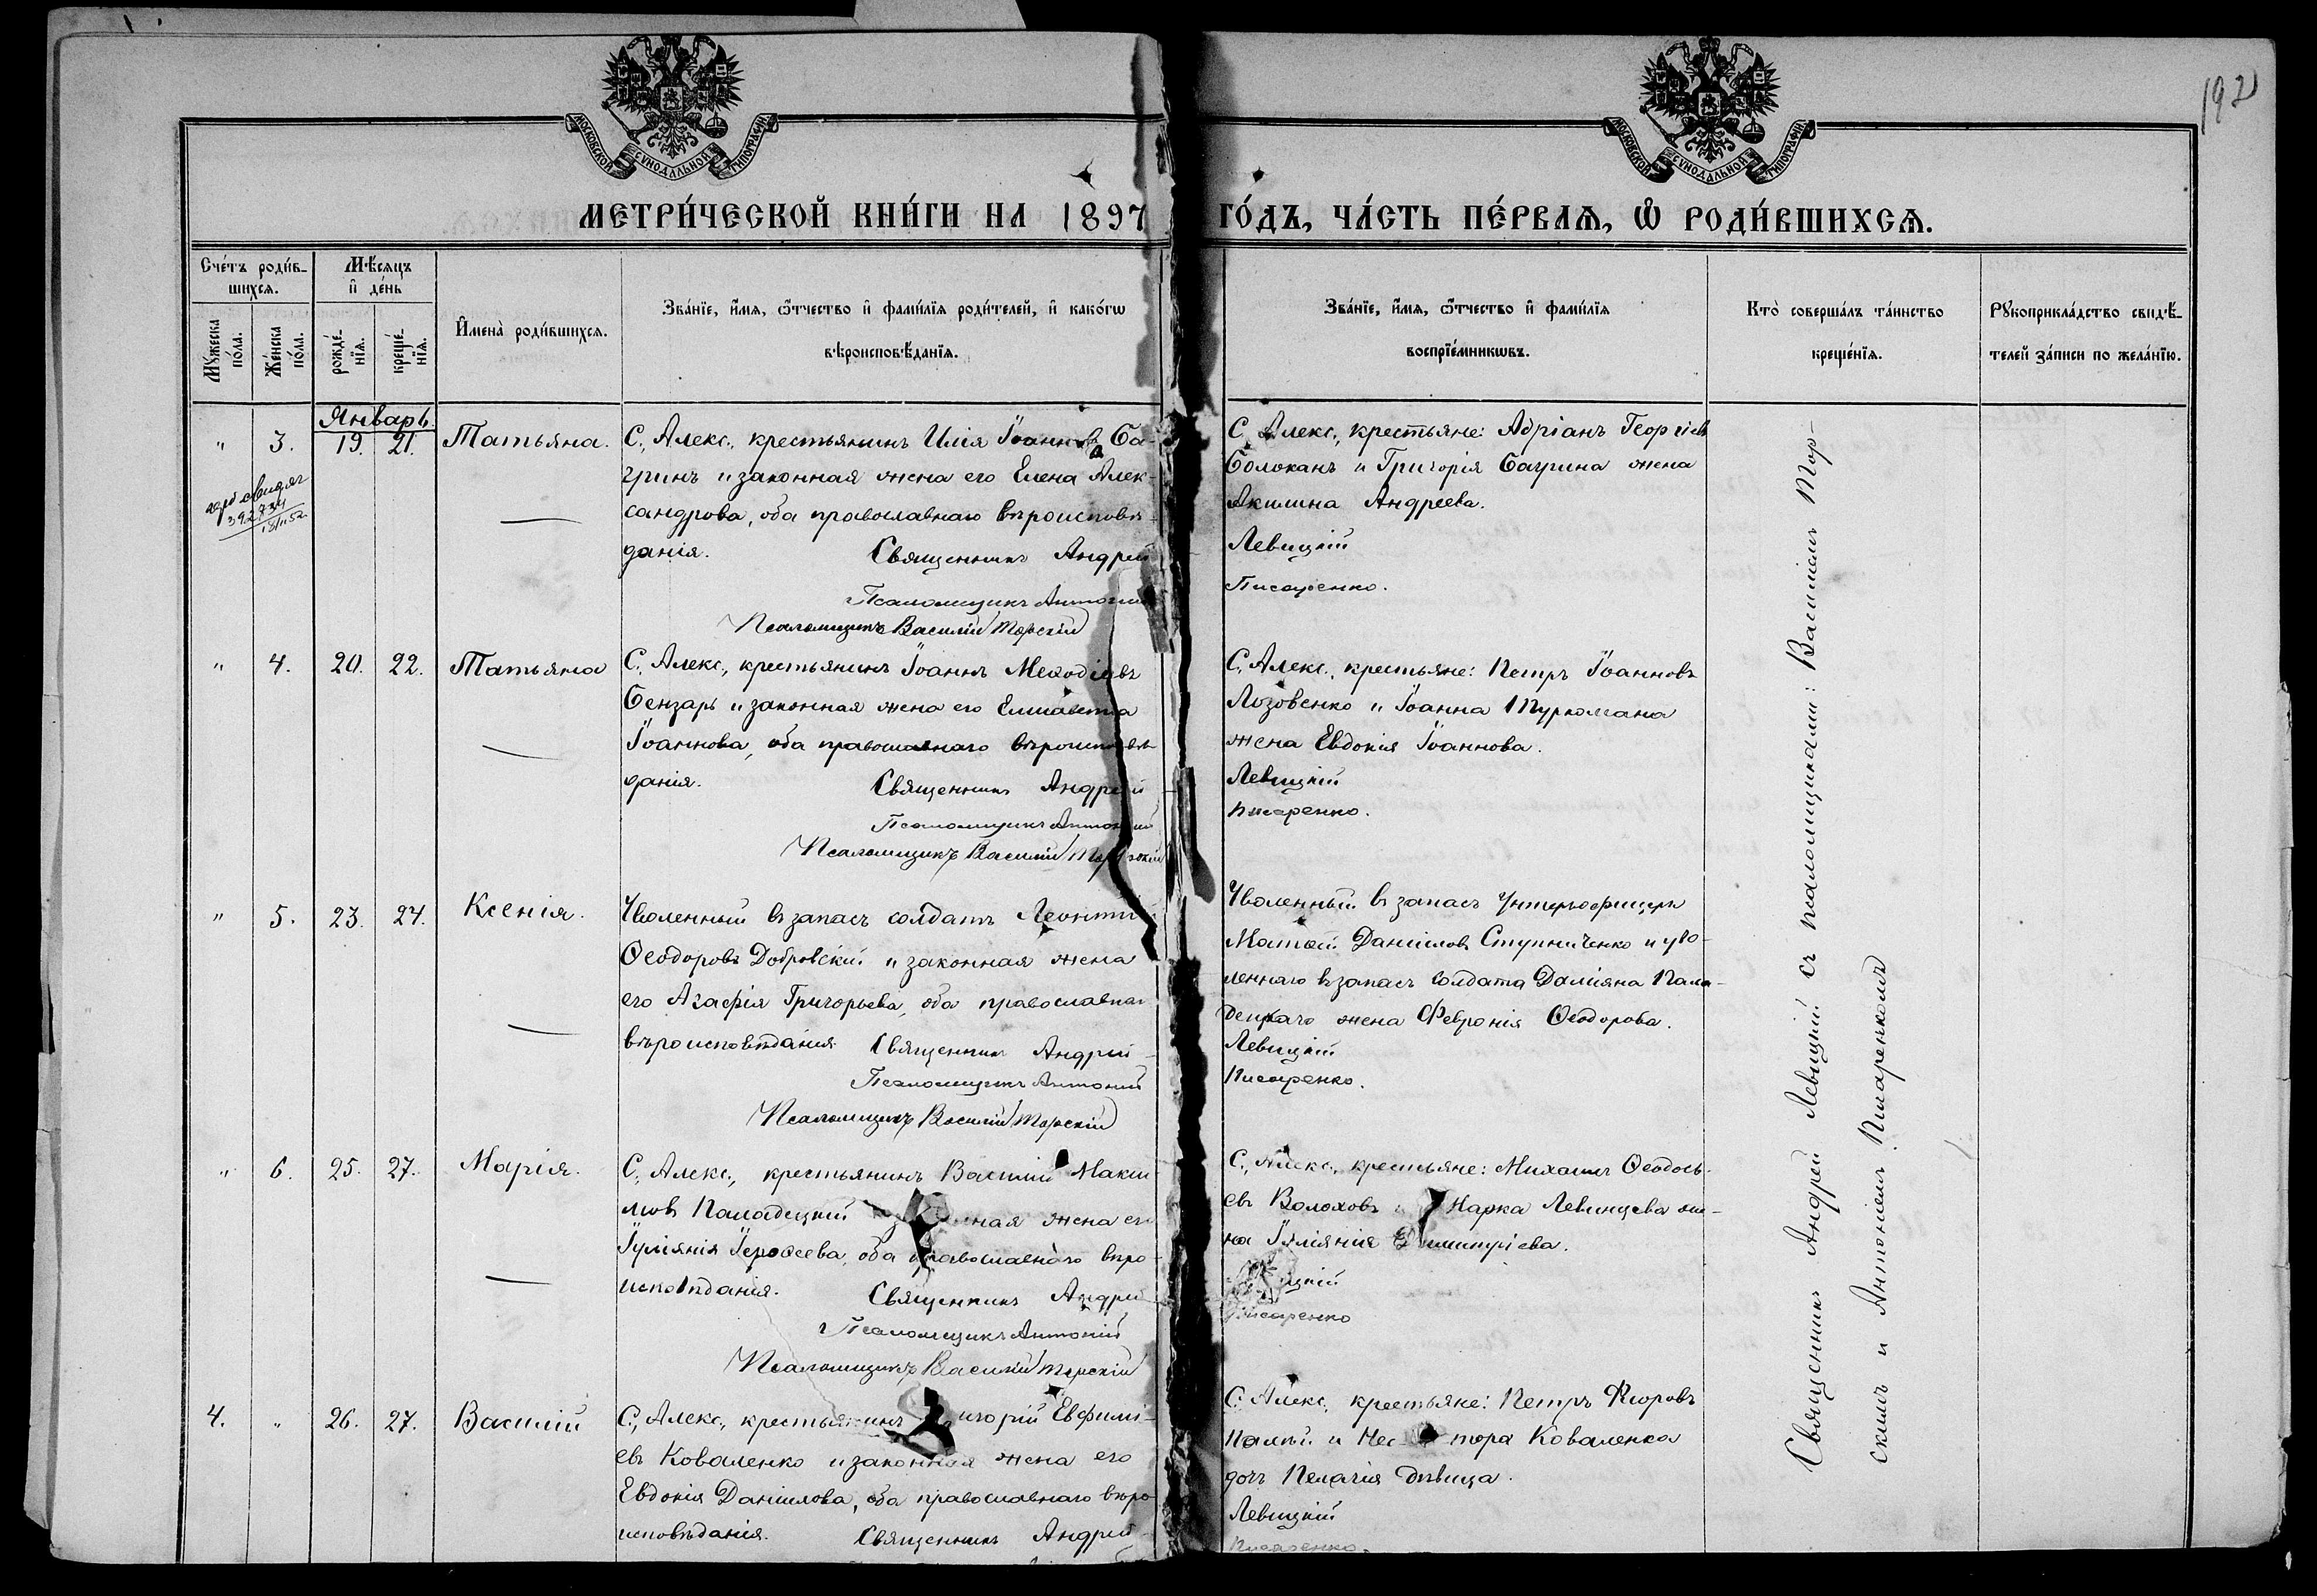 192
МОСКОВСКОЙ СУНОДАЛЬНОЙ ТИПОГРАФІИ
МОСКОВСКОЙ СУНОДАЛЬНОЙ ТИПОГРАФІИ
МЕТРИ́ЧЕСКОЙ КНИ́ГИ НА 1897 ГО́ДЪ, ЧА́СТЬ ПЕ́РВАѦ, Ѡ РОДИ́ВШИХСѦ.
Сче́тъ роди́в-
шихсѧ.
Мѣ́сѧцъ
и҆ де́нь
Мꙋ́жеска
по́ла.
Же́нска
по́ла.
рожде́-
нїѧ.
креще́-
нїѧ.
И҆мена̀ роди́вшихсѧ.
Зва́нїе, и҆́мѧ, ѻ҆́тчество и҆ фами́лїѧ роди́телей, и҆ како́гѡ
вѣроисповѣ́данїѧ.
Зва́нїе, и҆́мѧ, ѻ҆́тчество и҆ фами́лїѧ
воспрїе́мникѡвъ.
Кто̀ соверша́лъ та́инство
креще́нїѧ.
Рꙋкоприкла́дство свидѣ́-
телей за́писи по жела́нїю.
Январь
" 3. 19. 21. Татьяна.
392734
С. Алекс., крестьянинъ Илія Іоанновъ Ба-
гринъ и законная жена его Елена Алек-
сандрова, оба православнаго вѣроисповѣ-
данія. Священникъ Андрей
Псаломщикъ Антоній
Псаломщикъ Василій Торскій
С. Алекс., крестьяне: Адріанъ Георгіевъ
Болоканъ и Григорія Багрина жена
Акилина Андреева.
Левицкій
Писаренко.
" 4. 20. 22. Татьяна
С. Алекс., крестьянинъ Іоаннъ Меѳодіевъ
Бензарь и законная жена его Елисавета
Іоаннова, оба православнаго вѣроисповѣ-
данія. Священникъ Андрей
Псаломщикъ Антоній
Псаломщикъ Василій Торскій
С. Алекс., крестьяне: Петръ Іоанновъ
Лозовенко и Іоанна Туркомана
жена Евдокія Іоаннова.
Левицкій
Писаренко.
" 5. 23. 24. Ксенія.
Уволенный въ запасъ солдатъ Леонтій
Ѳеодоровъ Добровскій и законная жена
его Агафія Григорьева, оба православнаго
вѣроисповѣданія Священникъ Андрей
Псаломщикъ Антоній
Псаломщикъ Василій Торскій
Уволенный въ запасъ Унтеръ-офицеръ
Матѳей Даніиловъ Ступниченко и уво-
леннаго въ запасъ солдата Даміяна Пала-
децкаго жена Февронія Ѳеодорова.
Левицкій
Писаренко.
" 6. 25. 27. Марія.
С. Алекс., крестьянинъ Василій Макси-
мовъ Паладецкій законная жена его
Іуліянія Іероѳеева, оба православнаго вѣро-
исповѣданія. Священникъ Андрей
Псаломщикъ Антоній
Псаломщикъ Василій Торскій
С. Алекс., крестьяне: Михаилъ Ѳеодось-
евъ Волоховъ и Марка Левинцева же-
на Іуліянія Димитріева.
Левицкій
Писаренко
4. " 26. 27. Василій
С. Алекс., крестьянинъ Григорій Евфимі-
евъ Коваленко и законная жена его
Евдокія Даніилова, оба православнаго вѣро-
исповѣданія. Священникъ Андрей
С. Алекс. крестьяне: Петръ Флоровъ
Палій и Нестора Коваленка
дочь Пелагія дѣвица.
Левицкій
Писаренко.
Священникъ Андрей Левицкій съ псаломщиками: Василіемъ Тор-
скимъ и Антоніемъ Писаренкомъ